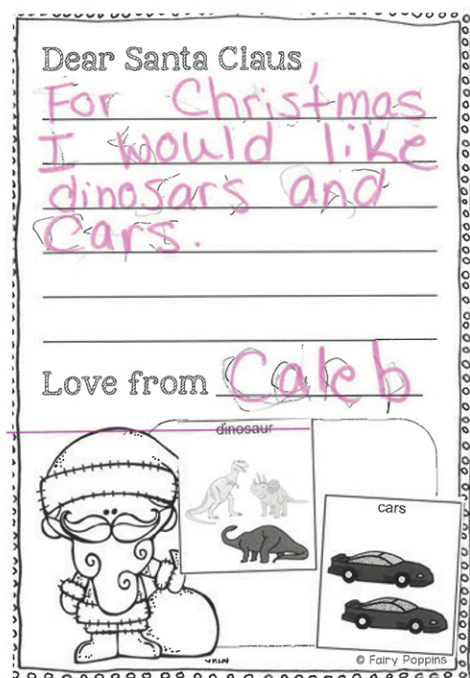 Dear Santa Claus,
For Christmas
I would like
dinosars and
Cars.
Love from Caleb
dinosaur
cars
© Fairy Poppins